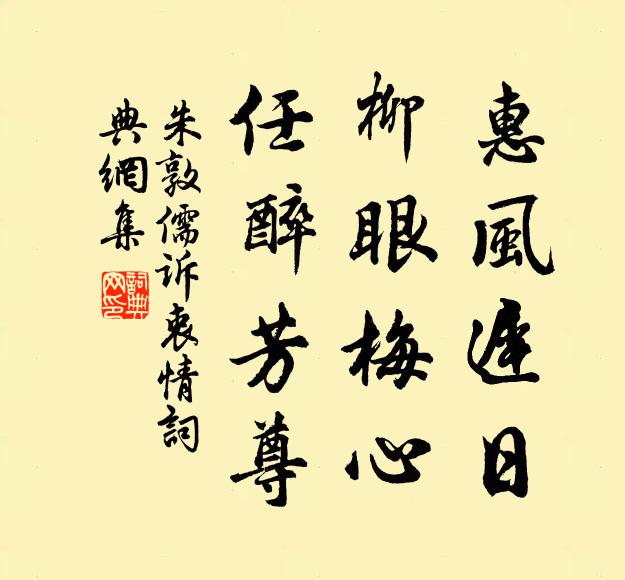 惠風遲日
柳眼梅心
任醉芳尊
朱敦儒訴衷情詞
典網集
詞典網印